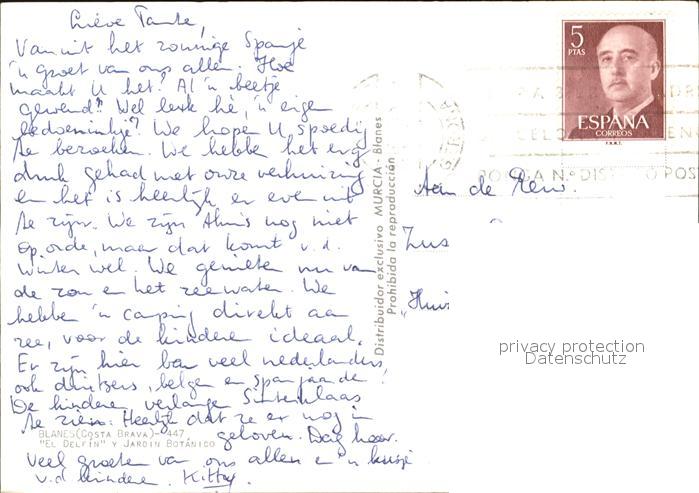 Lieve Tante,
Vanuit het zonnige Spanje
'n groet van ons allen. Hoe
maakt U het? Al 'n beetje
gewend? Wel leuk hè, 'n eigen
bedoeninkje? We hopen U spoedig
te bezoeken. We hebben het erg
druk gehad met onze verhuizing
en het is heerlijk er even uit
te zijn. We zijn thuis nog niet
op orde, maar dat komt v.d.
winter wel. We genieten nu van
de zon en het zeewater. We
hebben 'n camping direkt aan
zee, voor de kinderen ideaal.
Er zijn hier veel nederlanders,
ook duitsers, belgen en spanjaarden.
De kinderen verlangen Sinterklaas
te zien. Heerlijk dat ze er nog in
geloven. Dag hoor.
Veel groeten van ons allen en 'n kusje
v.d. kinderen. Kitty.
BLANES (COSTA BRAVA) - 447
"EL DELFIN" Y JARDIN BOTÁNICO
Distribuidor exclusivo MURCIA - Blanes
Prohibida la reproducción
5
PTAS
ESPAÑA
CORREOS
F.N.M.T.
PONGA N.º DISTRITO POST
Aan de Eerw.
Zus
"Huis
privacy protection
Datenschutz